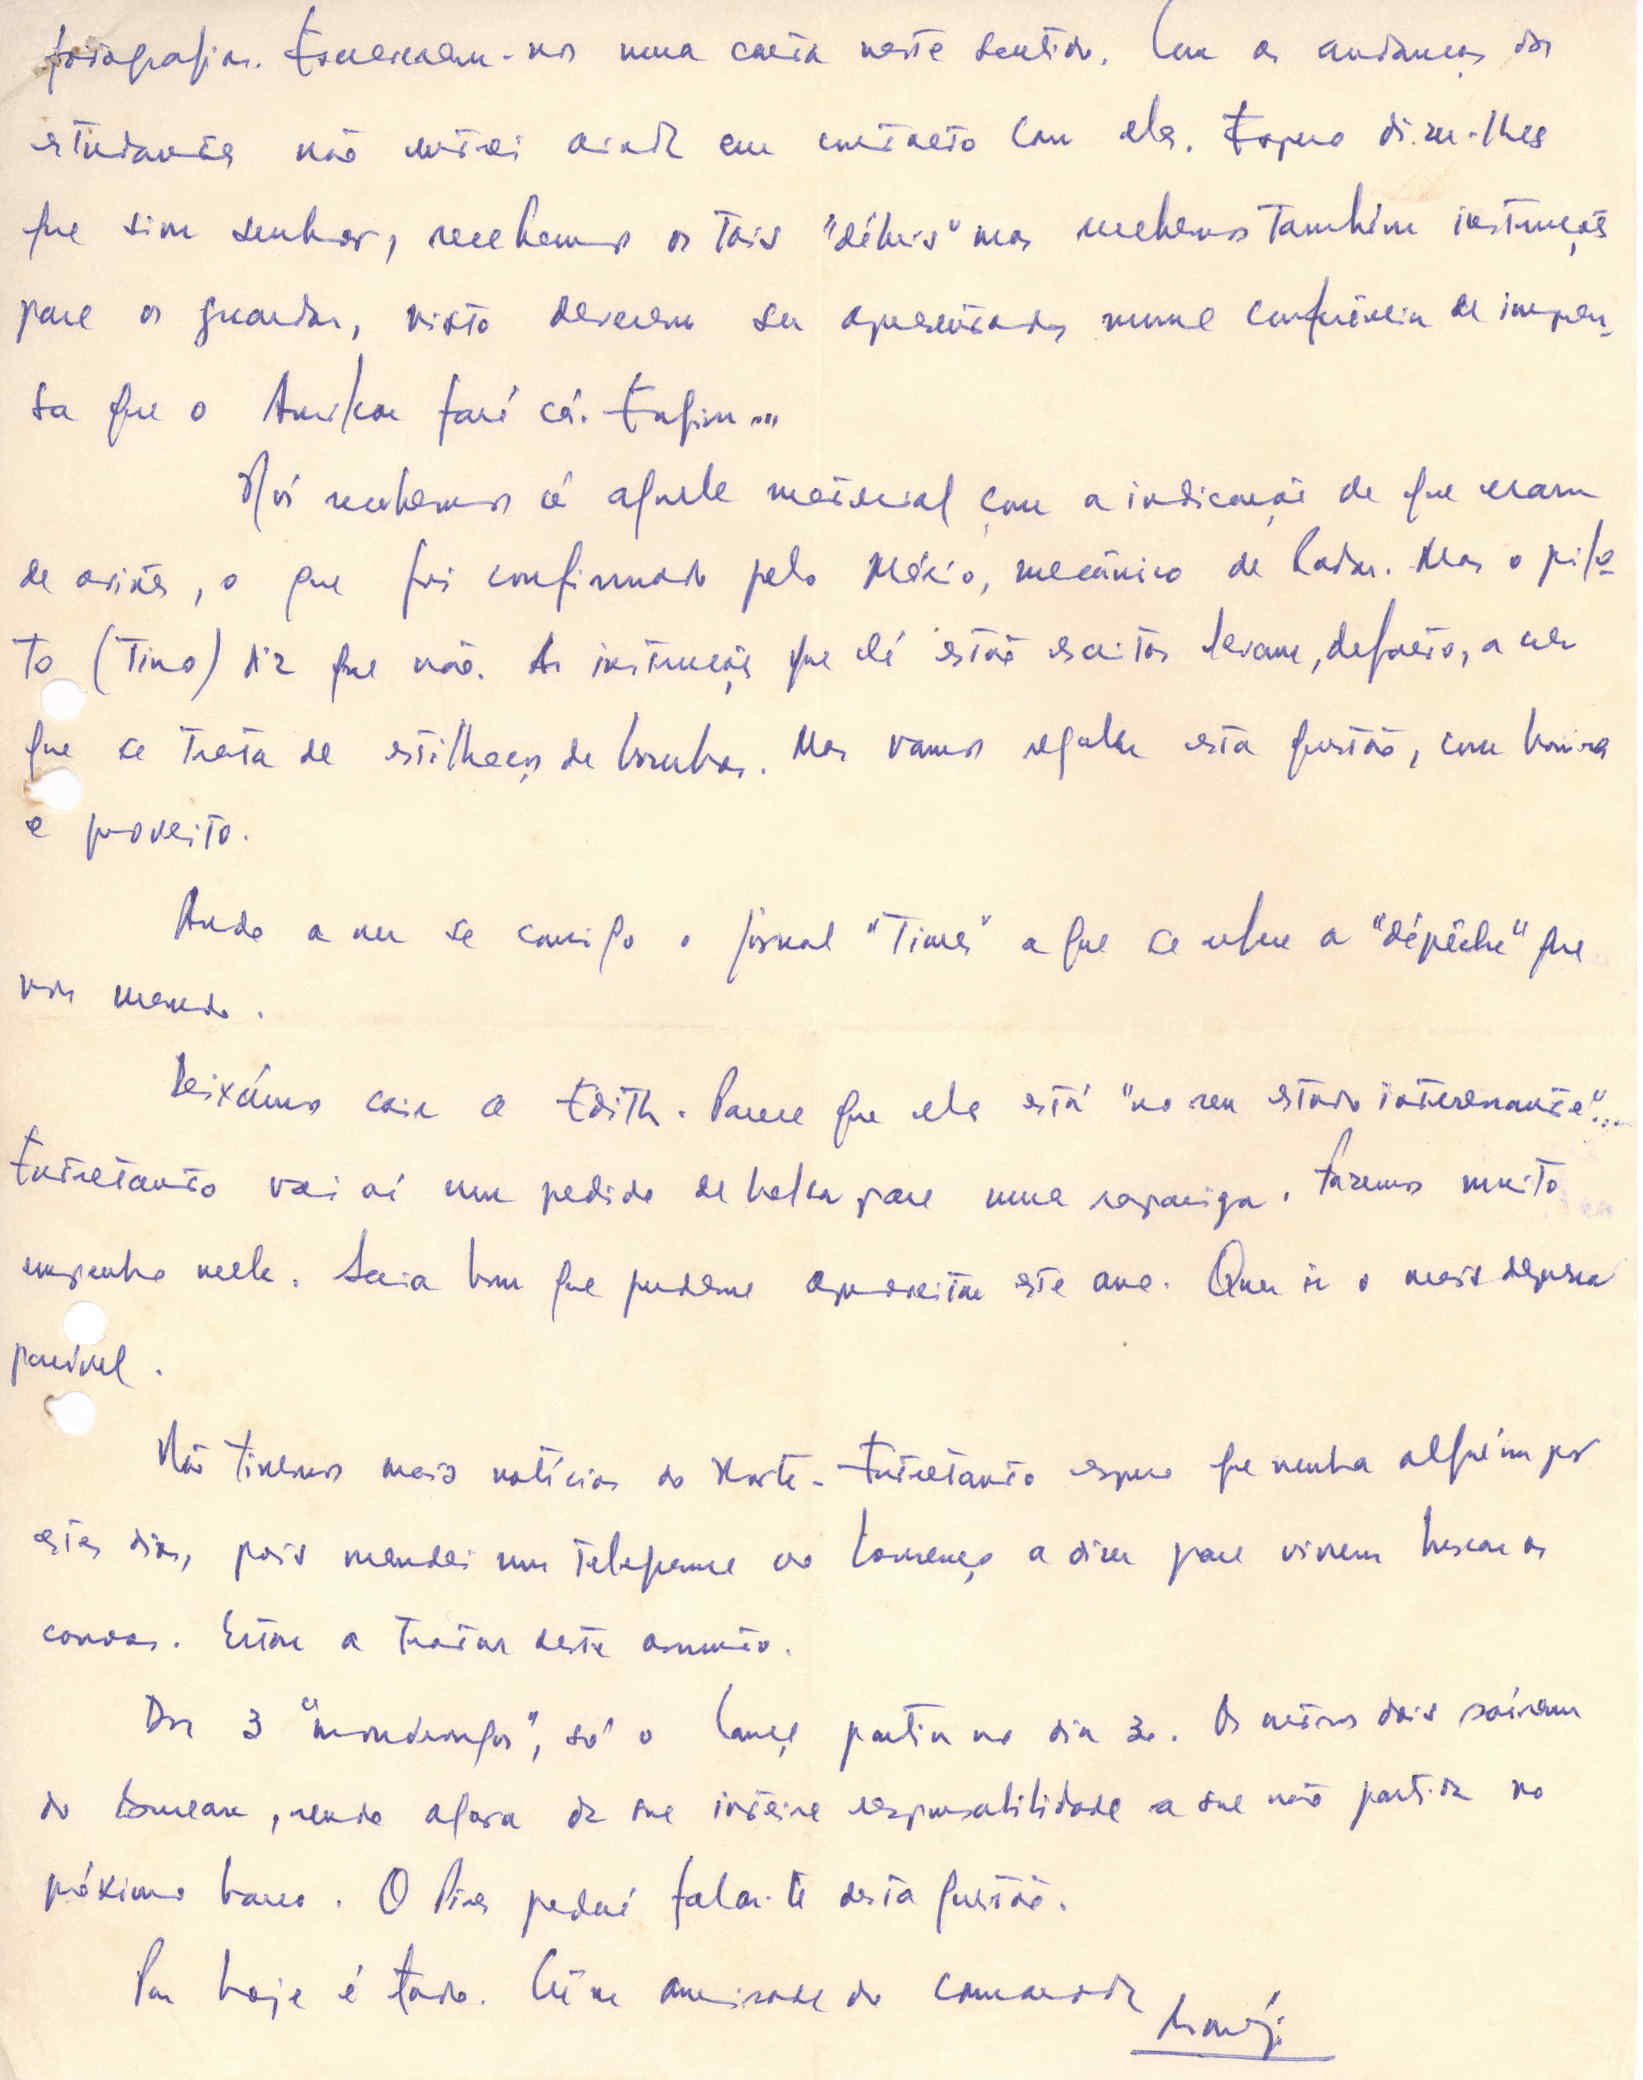 fotografias. Escreveram-nos uma carta neste sentido. Com as andanças dos
estudantes não entrei ainda em contacto com eles. Espero dizer-lhes
que sim senhor, recebemos os tais "débris" mas recebemos também instruções
para os guardar, visto deverem ser apresentados numa conferência de impren-
sa que o Amílcar fará cá. Enfim...
Nós recebemos cá aquele material com a indicação de que eram
de avião, o que foi confirmado pelo Mário, mecânico de Radar. Mas o pilo-
to (Tino) diz que não. As instruções que lá estão escritas levam, de facto, a crer
que se trata de estilhaços de bombas. Mas vamos regular esta questão, com honra
e proveito.
Ando a ver se consigo o jornal "Times" a que se refere a "dépêche" que
vos mando.
Deixámos cair a Edith. Parece que ela está "no seu estado interessante"...
Entretanto vai aí um pedido de bolsa para uma rapariga. Fazemos muito
empenho nele. Seria bom que pudesse aproveitar este ano. Quer ir o mais depressa
possível.
Não tivemos mais notícias do Norte. Entretanto espero que venha alguém por
estes dias, pois mandei um telegrama ao Lourenço a dizer para virem buscar as
coroas. Estou a tratar deste assunto.
Dos 3 "mondrongos", só o partiu no dia 30. Os outros dois saíram
do bureau, sendo agora da sua inteira responsabilidade a sua não partida no
próximo barco. O Pires poderá falar-te desta questão.
Por hoje é tudo. amizade do camarada
Araújo